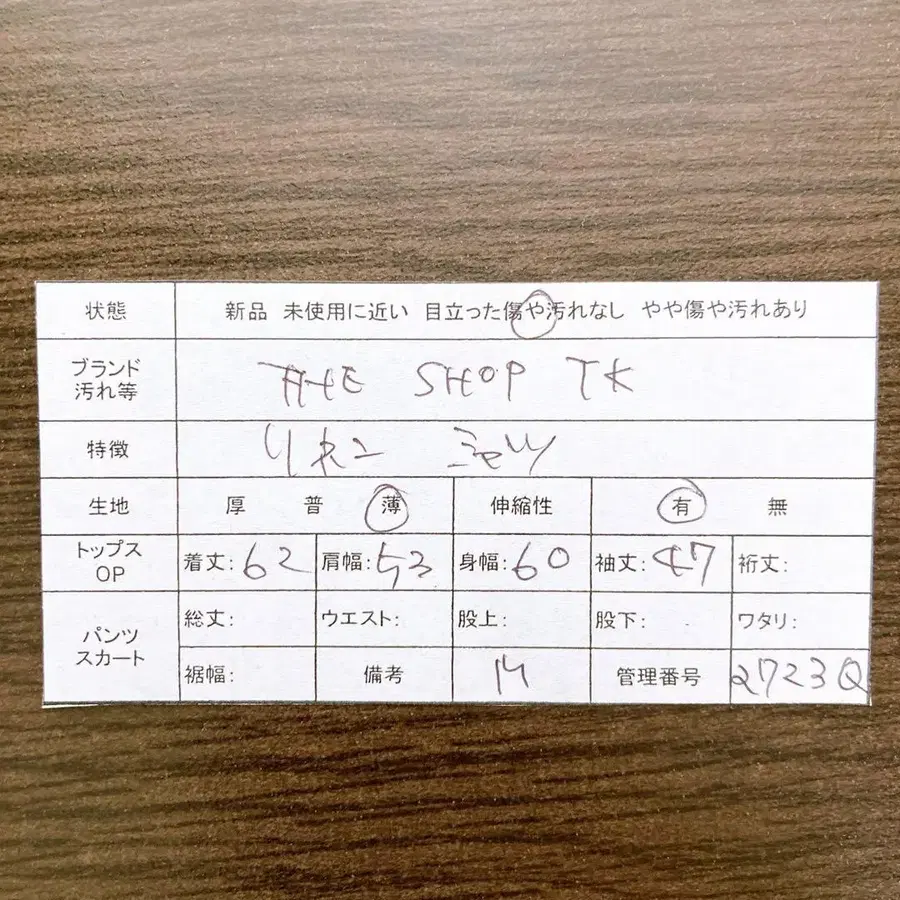 状態 新品 未使用に近い 目立った傷や汚れなし やや傷や汚れあり
ブランド 汚れ等 THE SHOP TK
特徴 シャツ
生地 厚 普 薄 伸縮性 有 無
トップス OP 着丈:62 肩幅:53 身幅:60 袖丈:47 裄丈:
パンツ スカート 総丈: ウエスト: 股上: 股下: ワタリ:
裾幅: 備考 M 管理番号 2723Q